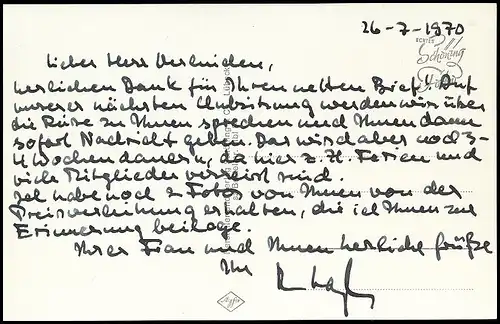 26-7-1970
ECHTES
Schöning
Lieber Herr
herzlichen Dank für Ihren netten Brief! Auf
unserer nächsten Clubsitzung werden wir über
die Reise zu Ihnen sprechen und Ihnen dann
sofort Nachricht geben. Das wird aber noch 3-
4 Wochen dauern, da hier z. Zt. Ferien und
viele Mitglieder verreist sind.
Ich habe noch 2 Fotos von Ihnen von der
Preisverleihung erhalten, die ich Ihnen zur
Erinnerung beilege.
Ihrer Frau und Ihnen herzliche Grüße
Ihr
Agfa